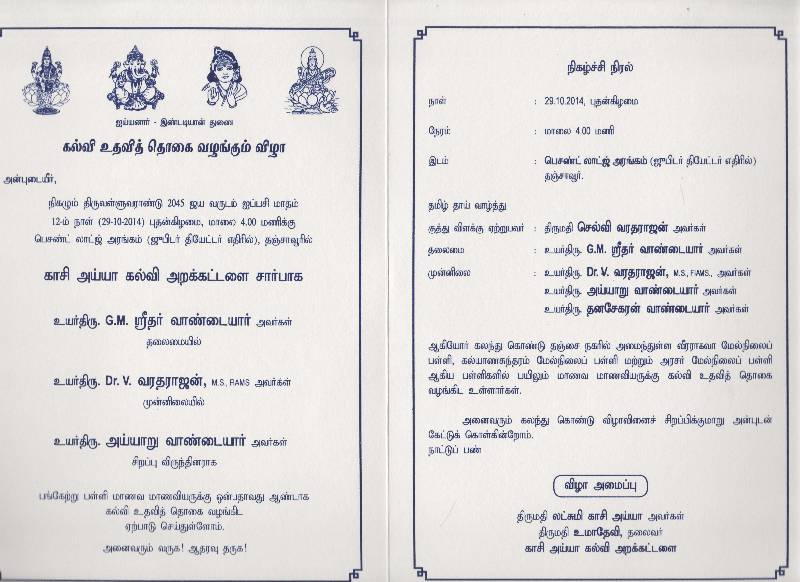 ஐய்யனார் - இண்டடியான் துணை
கல்வி உதவித் தொகை வழங்கும் விழா
அன்புடையீர்,
நிகழும் திருவள்ளுவராண்டு 2045 ஜய வருடம் ஐப்பசி மாதம்
12-ம் நாள் (29-10-2014) புதன்கிழமை, மாலை 4.00 மணிக்கு
பெசண்ட் லாட்ஜ் அரங்கம் (ஜுபிடர் தியேட்டர் எதிரில்), தஞ்சாவூரில்
காசி அய்யா கல்வி அறக்கட்டளை சார்பாக
உயர்திரு. G.M. ஸ்ரீதர் வாண்டையார் அவர்கள்
தலைமையில்
உயர்திரு. Dr. V. வரதராஜன், M.S., RAMS அவர்கள்
முன்னிலையில்
உயர்திரு. அய்யாறு வாண்டையார் அவர்கள்
சிறப்பு விருந்தினராக
பங்கேற்று பள்ளி மாணவ மாணவியருக்கு ஒன்பதாவது ஆண்டாக
கல்வி உதவித் தொகை வழங்கிட
ஏற்பாடு செய்துள்ளோம்.
அனைவரும் வருக! ஆதரவு தருக!
நிகழ்ச்சி நிரல்
நாள் : 29.10.2014, புதன்கிழமை
நேரம் : மாலை 4.00 மணி
இடம் : பெசண்ட் லாட்ஜ் அரங்கம் (ஜுபிடர் தியேட்டர் எதிரில்)
தஞ்சாவூர்.
தமிழ் தாய் வாழ்த்து
குத்து விளக்கு ஏற்றுபவர் : திருமதி செல்வி வரதராஜன் அவர்கள்
தலைமை : உயர்திரு. G.M. ஸ்ரீதர் வாண்டையார் அவர்கள்
முன்னிலை : உயர்திரு. Dr. V. வரதராஜன், M.S., FIAMS., அவர்கள்
உயர்திரு. அய்யாறு வாண்டையார் அவர்கள்
உயர்திரு. தனசேகரன் வாண்டையார் அவர்கள்
ஆகியோர் கலந்து கொண்டு தஞ்சை நகரில் அமைந்துள்ள வீரராகவா மேல்நிலைப்
பள்ளி, கல்யாணசுந்தரம் மேல்நிலைப் பள்ளி மற்றும் அரசர் மேல்நிலைப் பள்ளி
ஆகிய பள்ளிகளில் பயிலும் மாணவ மாணவியருக்கு கல்வி உதவித் தொகை
வழங்கிட உள்ளார்கள்.
அனைவரும் கலந்து கொண்டு விழாவினைச் சிறப்பிக்குமாறு அன்புடன்
கேட்டுக் கொள்கின்றோம்.
நாட்டுப் பண்
விழா அமைப்பு
திருமதி லட்சுமி காசி அய்யா அவர்கள்
திருமதி உமாதேவி, தலைவர்
காசி அய்யா கல்வி அறக்கட்டளை